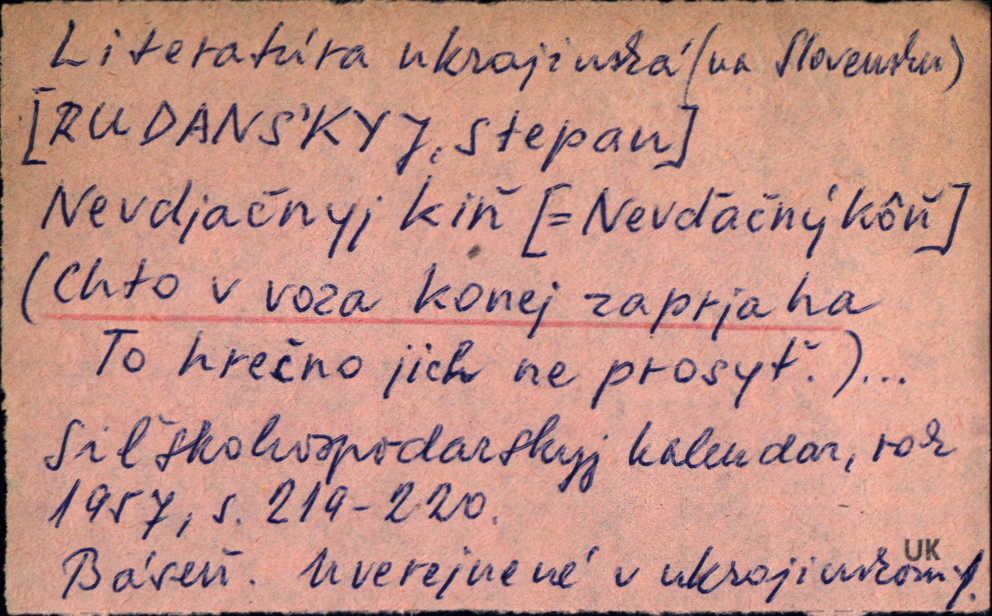 Literatúra ukrajinská (na Slovensku)
[RUDANS'KYJ, Stepan]
Nevdjačnyj kiň [= Nevďačný kôň]
(Chto v voza konej zaprjaha
To hrečno jich ne prosyť.)...
Siľśkohospodarśkyj kalendar, rok
1957, s. 219-220.
Báseň. Uverejnené v ukrajinskom j.
UK